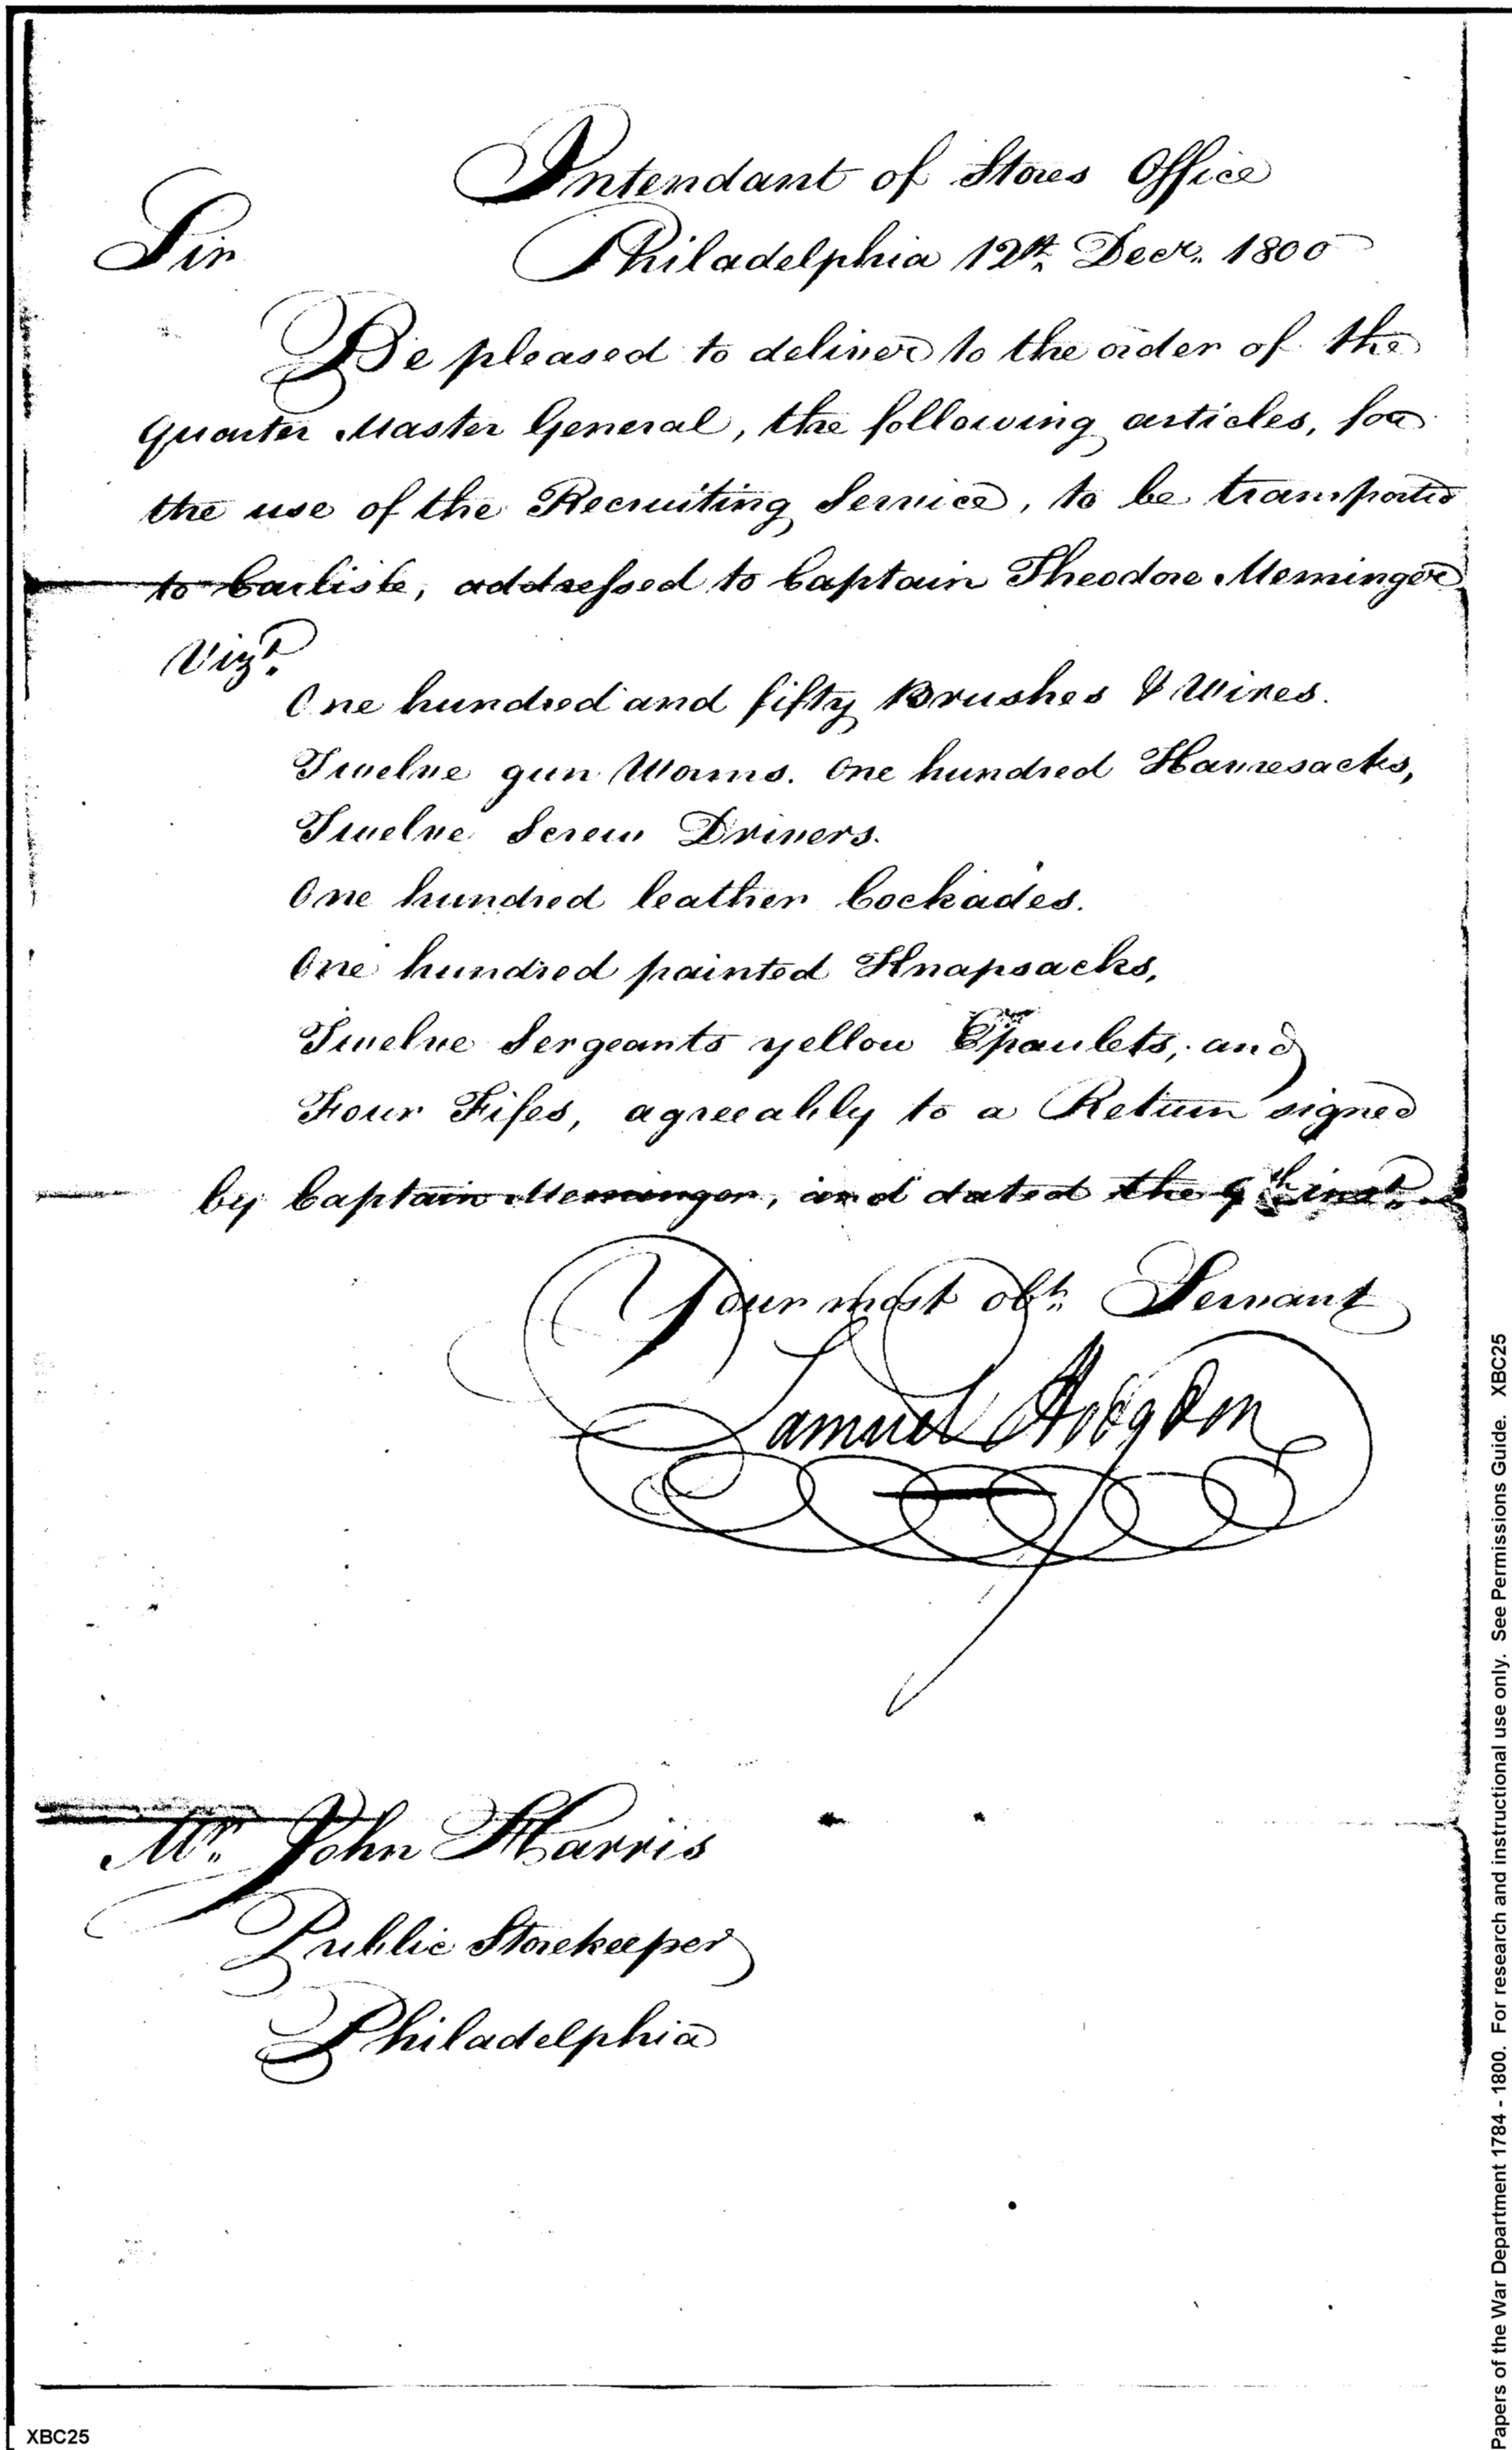 Intendant of Stores Office
Sir
Philadelphia 12th Decr. 1800
Be pleased to deliver to the order of the
Quarter Master General, the following articles, for
the use of the Recruiting Service, to be transported
to Carlisle, addressed to Captain Theodore Meminger
Vizt.
One hundred and fifty Brushes & Wires.
Twelve gun Worms. One hundred Haversacks,
Twelve Screw Drivers.
One hundred leather Cockades.
One hundred painted Knapsacks,
Twelve Sergeants yellow Epaulets, and
Four Fifes, agreeably to a Return signed
by Captain Meminger, and dated the 9th inst.
Your most obt. Servant
Samuel Hodgdon
Mr. John Harris
Public Storekeeper
Philadelphia
XBC25
Papers of the War Department 1784 - 1800. For research and instructional use only. See Permissions Guide. XBC25